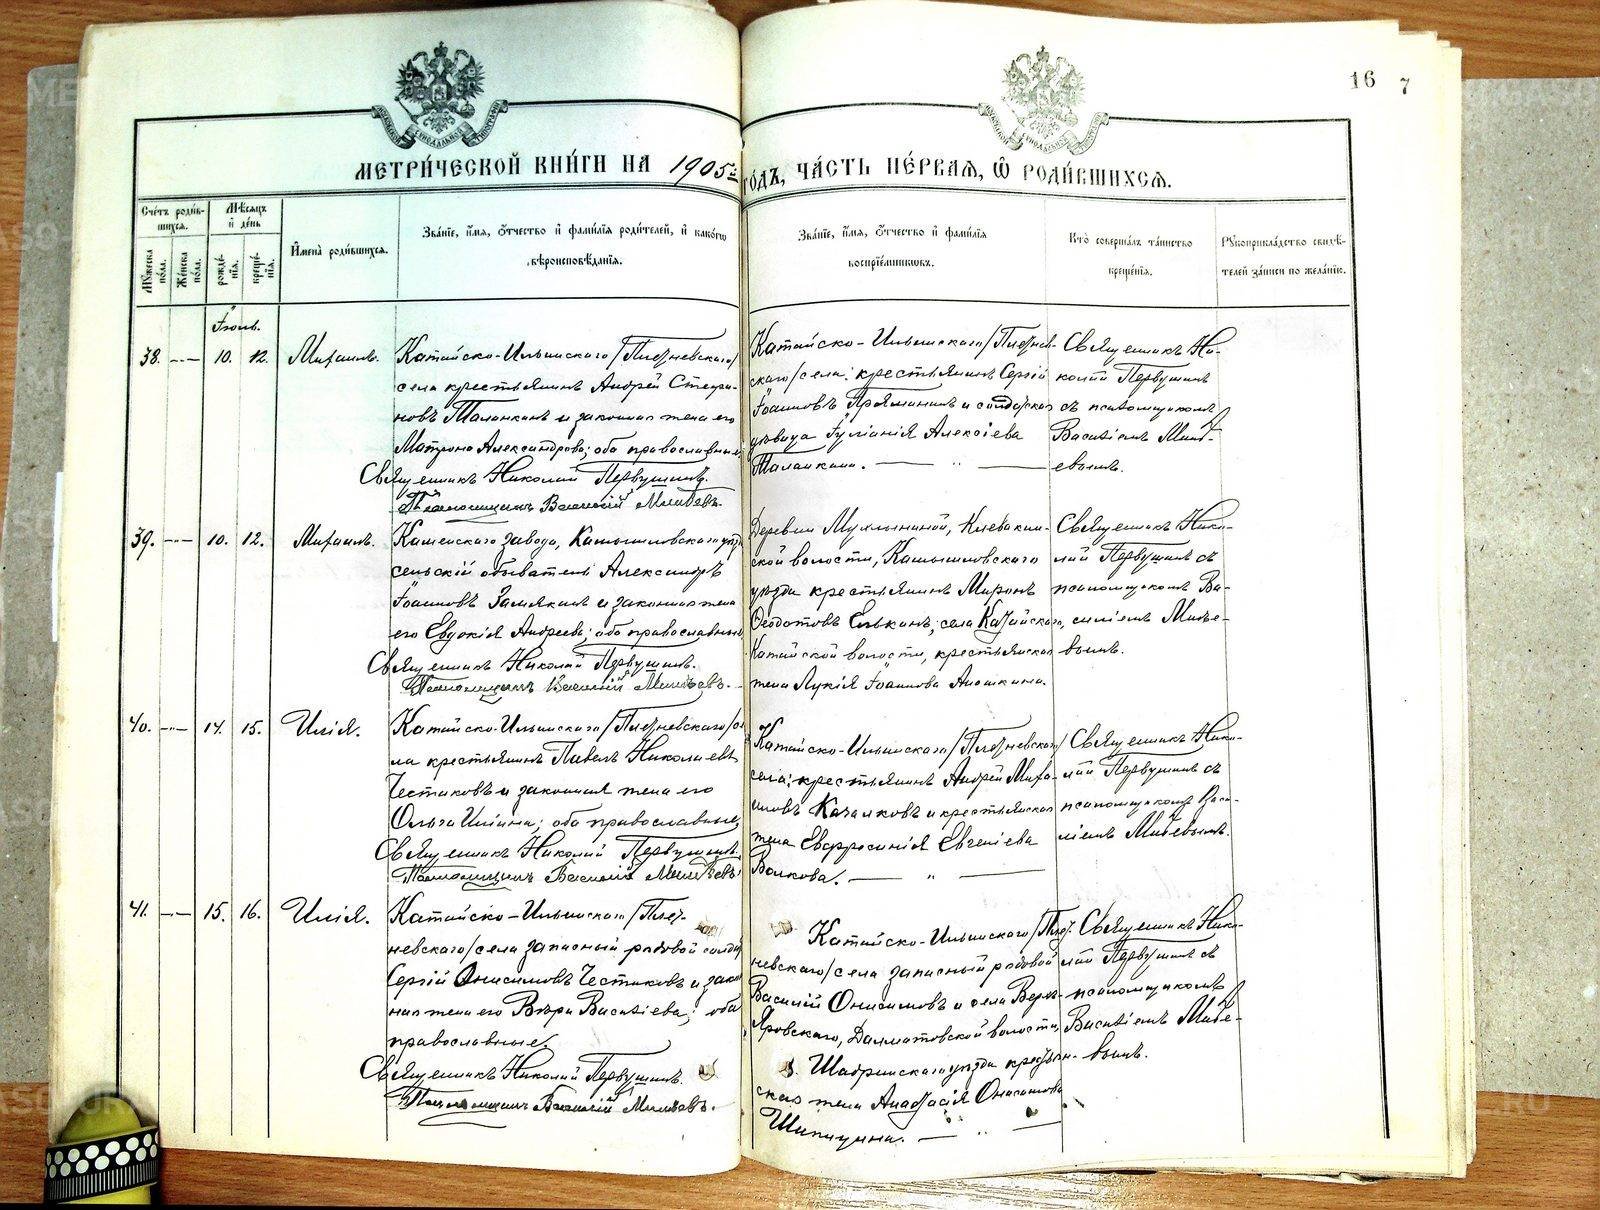 16 7
МЕТРИ́ЧЕСКОЙ КНИ́ГИ НА 1905й ГО́ДЪ, ЧА́СТЬ ПЕ́РВАЯ, Ѡ РОДИ́ВШИХСЯ.
Сче́тъ роди́в-
шихся.
Мꙋ́жеска по́ла.
Же́нска по́ла.
Мѣ́сяцъ
и҆ де́нь
рожде́-
нія.
креще́-
нія.
И҆мена̀ роди́вшихся.
Зва́ніе, и҆́мя, ѻ҆́тчество и҆ фами́лія роди́телей, и҆ како́гѡ
вѣроисповѣ́данія.
Зва́ніе, и҆́мя, ѻ҆́тчество и҆ фами́лія
воспріе́мникѡвъ.
Кто̀ соверша́лъ та́инство
креще́нія.
Рꙋкоприкла́дство свидѣ́-
телей за́писи по жела́нію.
Іюль.
38. —"— 10. 12. Михаилъ.
Катайско-Ильинскаго /Плотневскаго/
села крестьянинъ Андрей Стефа-
новъ Таланкинъ и законная жена его
Матрона Александрова; оба православные
Священникъ Николай Первушинъ.
Псаломщикъ Василій
Катайско-Ильинскаго /Плотнев-
скаго/ села: крестьянинъ Сергій
Іоанновъ и солдатская
вдова Іуліанія Алексіева
Таланкина. — " —
Священникъ Ни-
колай Первушинъ
съ псаломщикомъ
Василіемъ
39. —"— 10. 12. Михаилъ.
Каменскаго завода, Камышловскаго уѣзда
сельскій обыватель Александръ
Іоанновъ и законная жена
его Евдокія Андреева; оба православные
Священникъ Николай Первушинъ.
Псаломщикъ Василій
Деревни
ской волости, Камышловскаго
уѣзда крестьянинъ Миронъ
Ѳеодотовъ села Катайскаго,
Катайской волости, крестьянская
жена Лукія Іоаннова
Священникъ Нико-
лай Первушинъ съ
псаломщикомъ Ва-
силіемъ
40. —"— 14. 15. Илія.
Катайско-Ильинскаго /Плотневскаго/ се-
ла крестьянинъ Павелъ Николаевъ
Честиковъ и законная жена его
Ольга Иліина; оба православные
Священникъ Николай Первушинъ.
Псаломщикъ Василій
Катайско-Ильинскаго /Плотневскаго/
села: крестьянинъ Андрей Миха-
иловъ Качалковъ и крестьянская
жена Евфросинія Евгеніева
Волкова. — " —
Священникъ Нико-
лай Первушинъ съ
псаломщикомъ Васи-
ліемъ
41. —"— 15. 16. Илія.
Катайско-Ильинскаго /Плот-
невскаго/ села запасный рядовой солдатъ
Сергій Онисимовъ Честиковъ и закон-
ная жена его Вѣра Василіева; оба
православные.
Священникъ Николай Первушинъ.
Псаломщикъ Василій
Катайско-Ильинскаго /Плот-
невскаго/ села запасный рядовой
Василій Онисимовъ и села Верх-
Яровскаго, Далматовской волости,
Шадринскаго уѣзда крестьян-
ская жена Анастасія Онисимова
Шипицина. — " —
Священникъ Нико-
лай Первушинъ съ
псаломщикомъ
Василіемъ